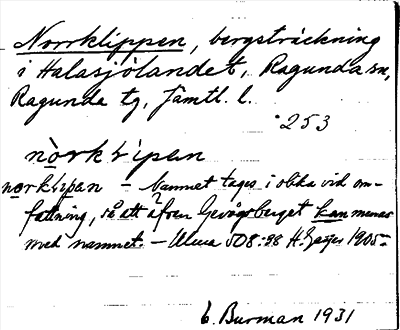 Norrklippen, bergsträckning
i Halasjölandet, Ragunda sn,
Ragunda tg, Jämtl. l.
253
nòrkłipan
nòrkłipan – Namnet tages i olika vid om-
fattning, så att även Gevågsberget kan menas
med namnet. – Ulma 508:98 H. Geijer 1905.
E. Burman 1931